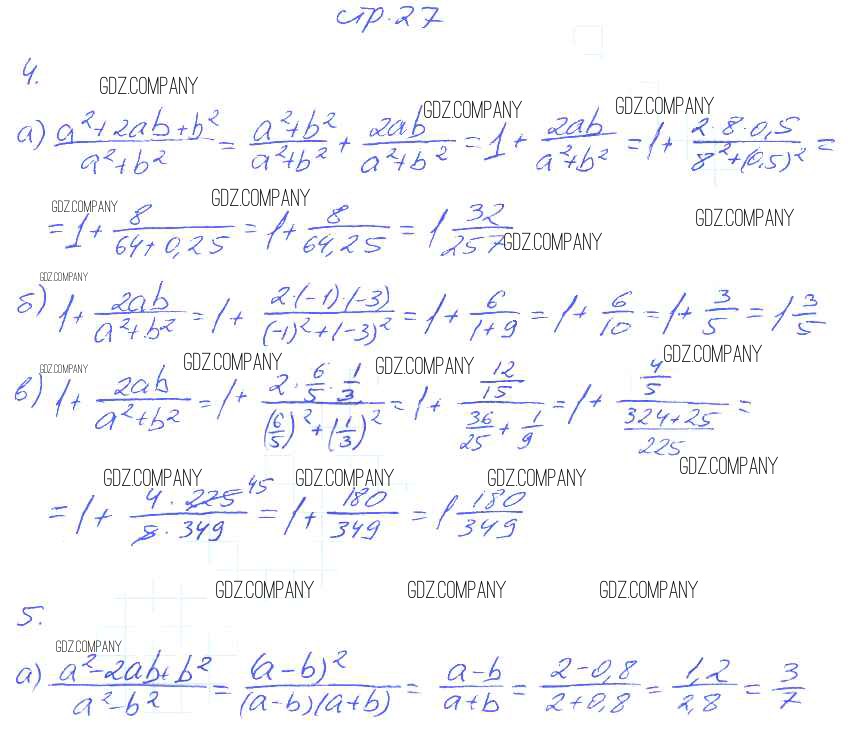 стр. 27
4.
GDZ.COMPANY
GDZ.COMPANY GDZ.COMPANY
а) (a²+2ab+b²)/(a²+b²) = (a²+b²)/(a²+b²) + 2ab/(a²+b²) = 1 + 2ab/(a²+b²) = 1 + (2·8·0,5)/(8²+(0,5)²) =
GDZ.COMPANY GDZ.COMPANY GDZ.COMPANY
= 1 + 8/(64+0,25) = 1 + 8/64,25 = 1 32/257
GDZ.COMPANY
GDZ.COMPANY
б) 1 + 2ab/(a²+b²) = 1 + (2·(-1)·(-3))/((-1)²+(-3)²) = 1 + 6/(1+9) = 1 + 6/10 = 1 + 3/5 = 1 3/5
GDZ.COMPANY GDZ.COMPANY GDZ.COMPANY GDZ.COMPANY
в) 1 + 2ab/(a²+b²) = 1 + (2·6/5·1/3)/((6/5)²+(1/3)²) = 1 + (12/15)/(36/25+1/9) = 1 + (4/5)/((324+25)/225) =
GDZ.COMPANY
GDZ.COMPANY GDZ.COMPANY GDZ.COMPANY
= 1 + (4·225 45)/(5·349) = 1 + 180/349 = 1 180/349
GDZ.COMPANY GDZ.COMPANY GDZ.COMPANY
5.
GDZ.COMPANY
а) (a²-2ab+b²)/(a²-b²) = (a-b)²/((a-b)(a+b)) = (a-b)/(a+b) = (2-0,8)/(2+0,8) = 1,2/2,8 = 3/7